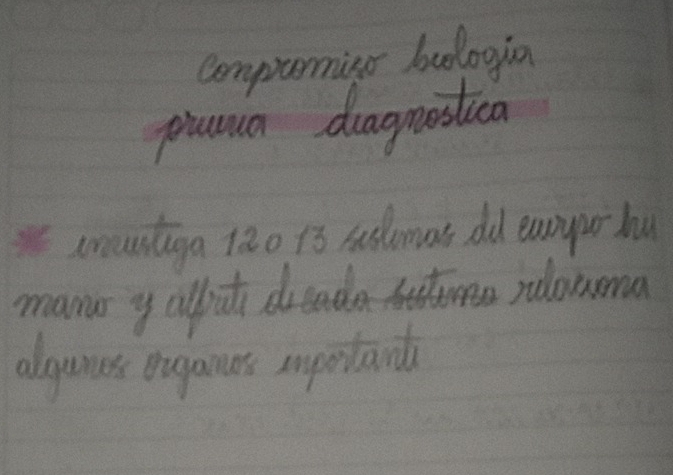 compromiso biologia
prueva diagnostica
* investiga 12 o 13 sistemas del cuerpo hu
mano y alfrente de cada sistema relaciona
algunos organos importante